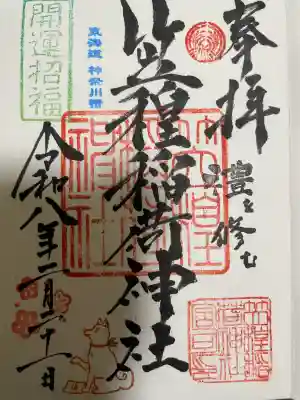 奉拝
禮を修む
東海道 神奈川宿
笠䅣稲荷神社
開運招福
令和八年二月二十一日